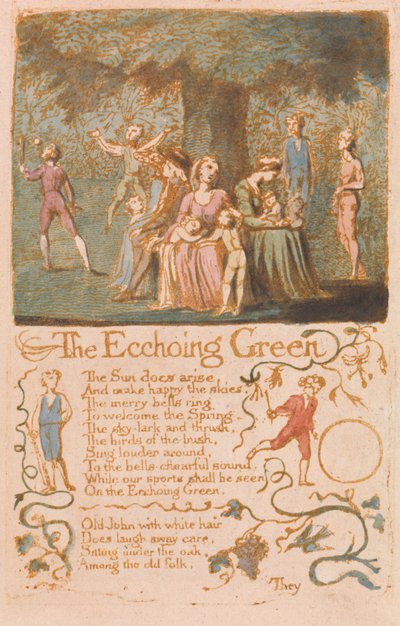 The Ecchoing Green
The Sun does arise,
And make happy the skies.
The merry bells ring,
To welcome the Spring.
The sky-lark and thrush,
The birds of the bush,
Sing louder around,
To the bells chearful sound,
While our sports shall be seen
On the Ecchoing Green.
Old John with white hair
Does laugh away care,
Sitting under the oak,
Among the old folk,
They